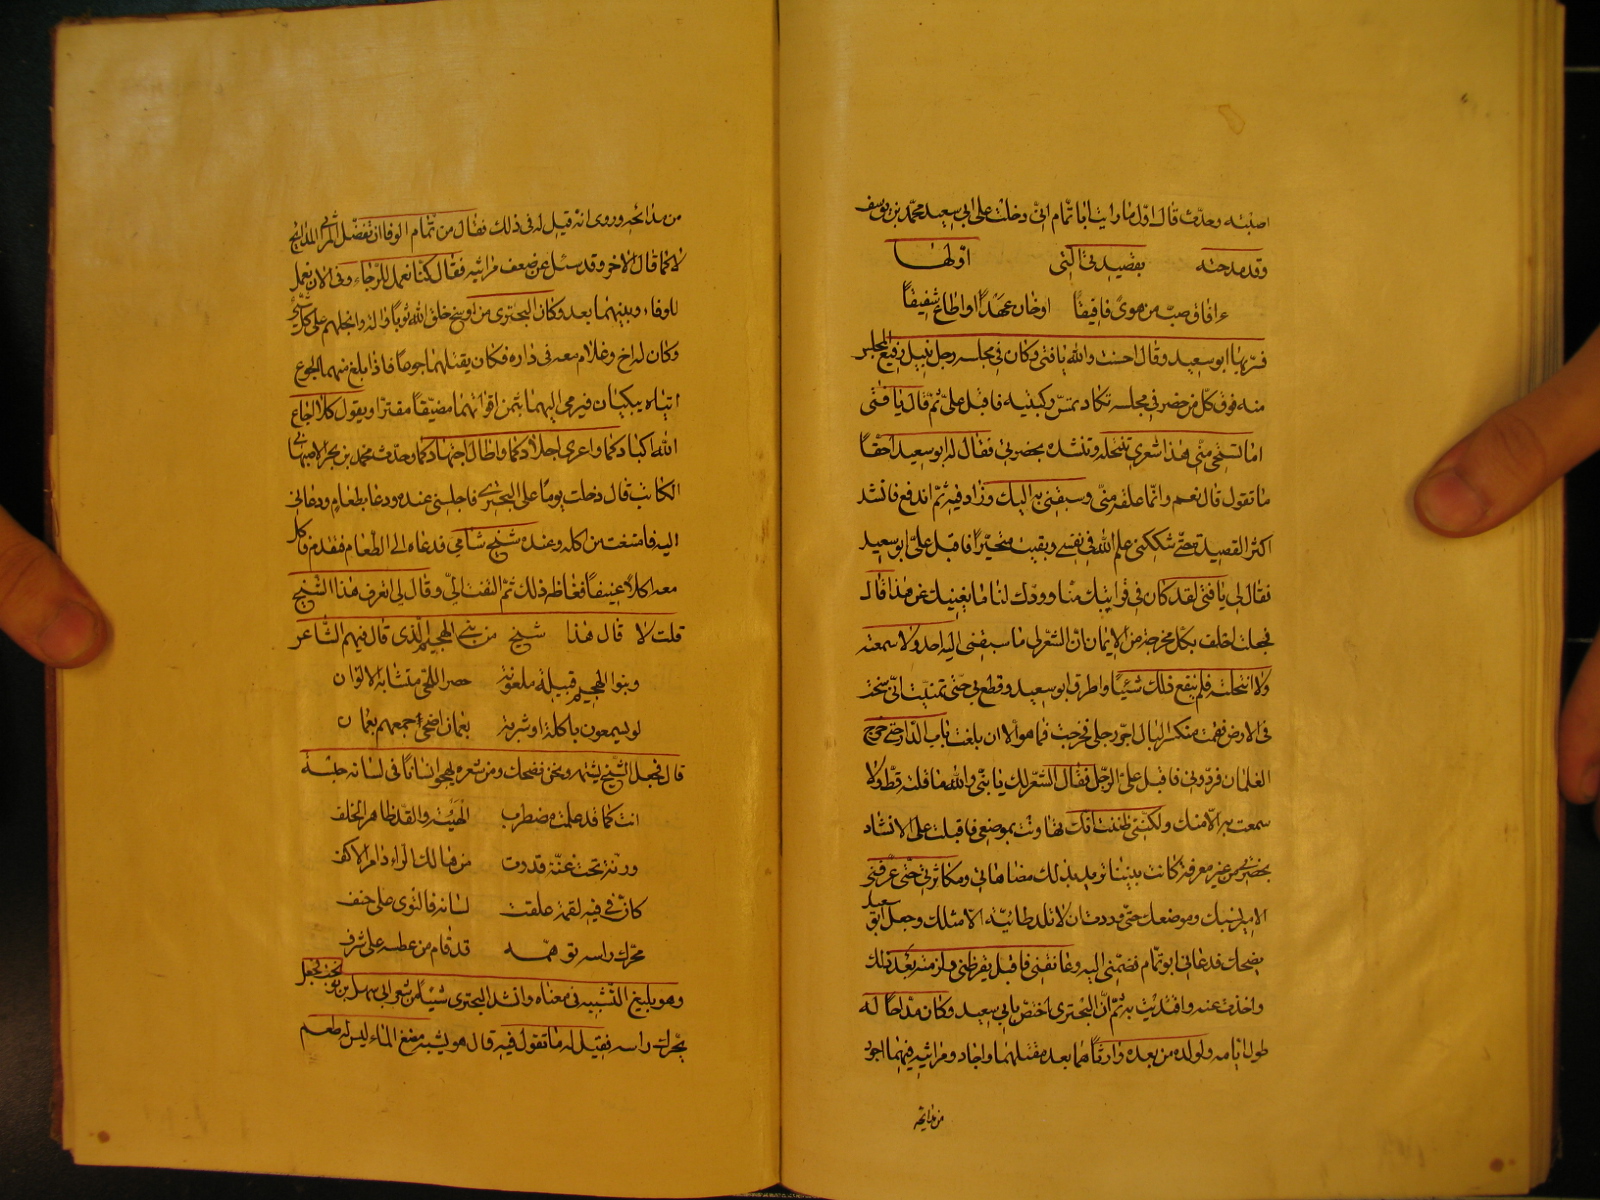 اصبته وحدث قال اول ما رايت ابا تمام انى دخلت على ابى سعيد محمد بن يوسف
وقد مدحته بقصيدتى التى اولها
ءافاق صب من هوى فافيقا اوخان عهدا اواطاع شفيقا
فسر بها ابو سعيد وقال احسنت والله يا فتى وكان فى مجلسه رجل نبيل رفيع المجلس
منه فوق كل من حضر فى مجلسه تكاد تمس ركبتيه فاقبل على ثم قال يا فتى
اما تستحى منى هذا شعرى تنتحله وتنشده بحضرتى فقال له ابو سعيد احقا
ما تقول قال نعم وانما علقه منى وسبقنى به اليك وزاد فيه ثم اندفع فانشد
اكثر القصيدة حتى شككنى علم الله فى نفسى وبقيت متحيرا فاقبل على ابو سعيد
فقال لى يا فتى لقد كان فى قرابتك منا وودك لنا ما يغنيك عن هذا قال
فجعلت احلف بكل محرجة من الايمان ان الشعر لى ما سبقنى اليه احد ولا سمعته
ولا انتحلته فلم ينفع ذلك شيئا واطرق ابو سعيد وقطع بى حتى تمنيت انى سخت
فى الارض فقمت منكسر البال اجر رجلى فخرجت فما هو الا ان بلغت باب الدار حتى خرج
الغلمان فردونى فاقبل على الرجل فقال الشعر لك يا بنى والله ما قلته قط ولا
سمعت به الا منك ولكننى ظننت انك تهاونت بموضعى فاقبلت على الانشاد
بحضرتى من غير معرفة كانت بيننا تريد بذلك مضاهاتى ومكاثرتى حتى عرفنى
الامير نسبك وموضعك حتى وددت ان لا تلد طائية الا مثلك وجعل ابو سعيد
يضحك فدعانى ابو تمام فضمنى اليه وعانقنى فاقبل يقرظنى ولزمته بعد ذلك
واخذت عنه واقتديت به ثم ان البحترى اختص بابى سعيد وكان مداحا له
طول ايامه ولولده من بعده وارثاهما بعد مقتلهما واجاد ومراثيه فيهما اجود
من مدائحه
من مدائحه وروى انه قيل له فى ذلك فقال من تمام الوفا ان تفضل المراثى المدائح
لا كما قال الاخر وقد سئل عن ضعف مراثيه فقال كنا نعمل للرجاء وفى الان نعمل
للوفاء وبينهما بعد وكان البحترى من اوسخ خلق الله ثوبا واله وابخلهم على كل شىء
وكان له اخ وغلام معه فى داره فكان يقتلهما جوعا فاذا بلغ منهما الجوع
اتياه يبكيان فيرمى اليهما بثمن اقواتهما مضيقا مقترا ويقول كلا اجاع
الله اكبادكما واعرى اجلادكما واطال اجهادكما وحدث محمد بن بحر الاصبهانى
الكاتب قال دخلت يوما على البحترى فاجلسنى عنده ودعا بطعام ودعانى
اليه فامتنعت من اكله وعنده شيخ شامى فدعاه الى الطعام فقدم فاكل
معه اكلا عنيفا فغاظه ذلك ثم التفت الى وقال لى اتعرف هذا الشيخ
قلت لا قال هذا شيخ من بنى الهجيم الذى قال فيهم الشاعر
وبنوا الهجيم قبيلة ملعونة حصر اللحى متشابه الالوان
لو يسمعون باكلة او شربة بعمان اضحى جمعهم بعمان
قال فجعل الشيخ يشتمه ونحن نضحك ومن شعره يهجو انسانا فى لسانه حبسة
انت كما قد علمت مضطرب الهيئة والقد ظاهر الخلف
ورتة تحت غنة قدرت من هالك الراء دامر الالف
كان فى فيه لقمة علقت لسانه فالتوى على حنف
محرك راسه توهمه قد قام من عطسة على شرف
وهو بليغ التشبيه فى معناه وانشد البحترى شيئا من شعر ابى سهل بن نوبخت فجعل
يحرك راسه فقيل له ما تقول فيه قال هو يشبه مضغ الماء ليس له طعم